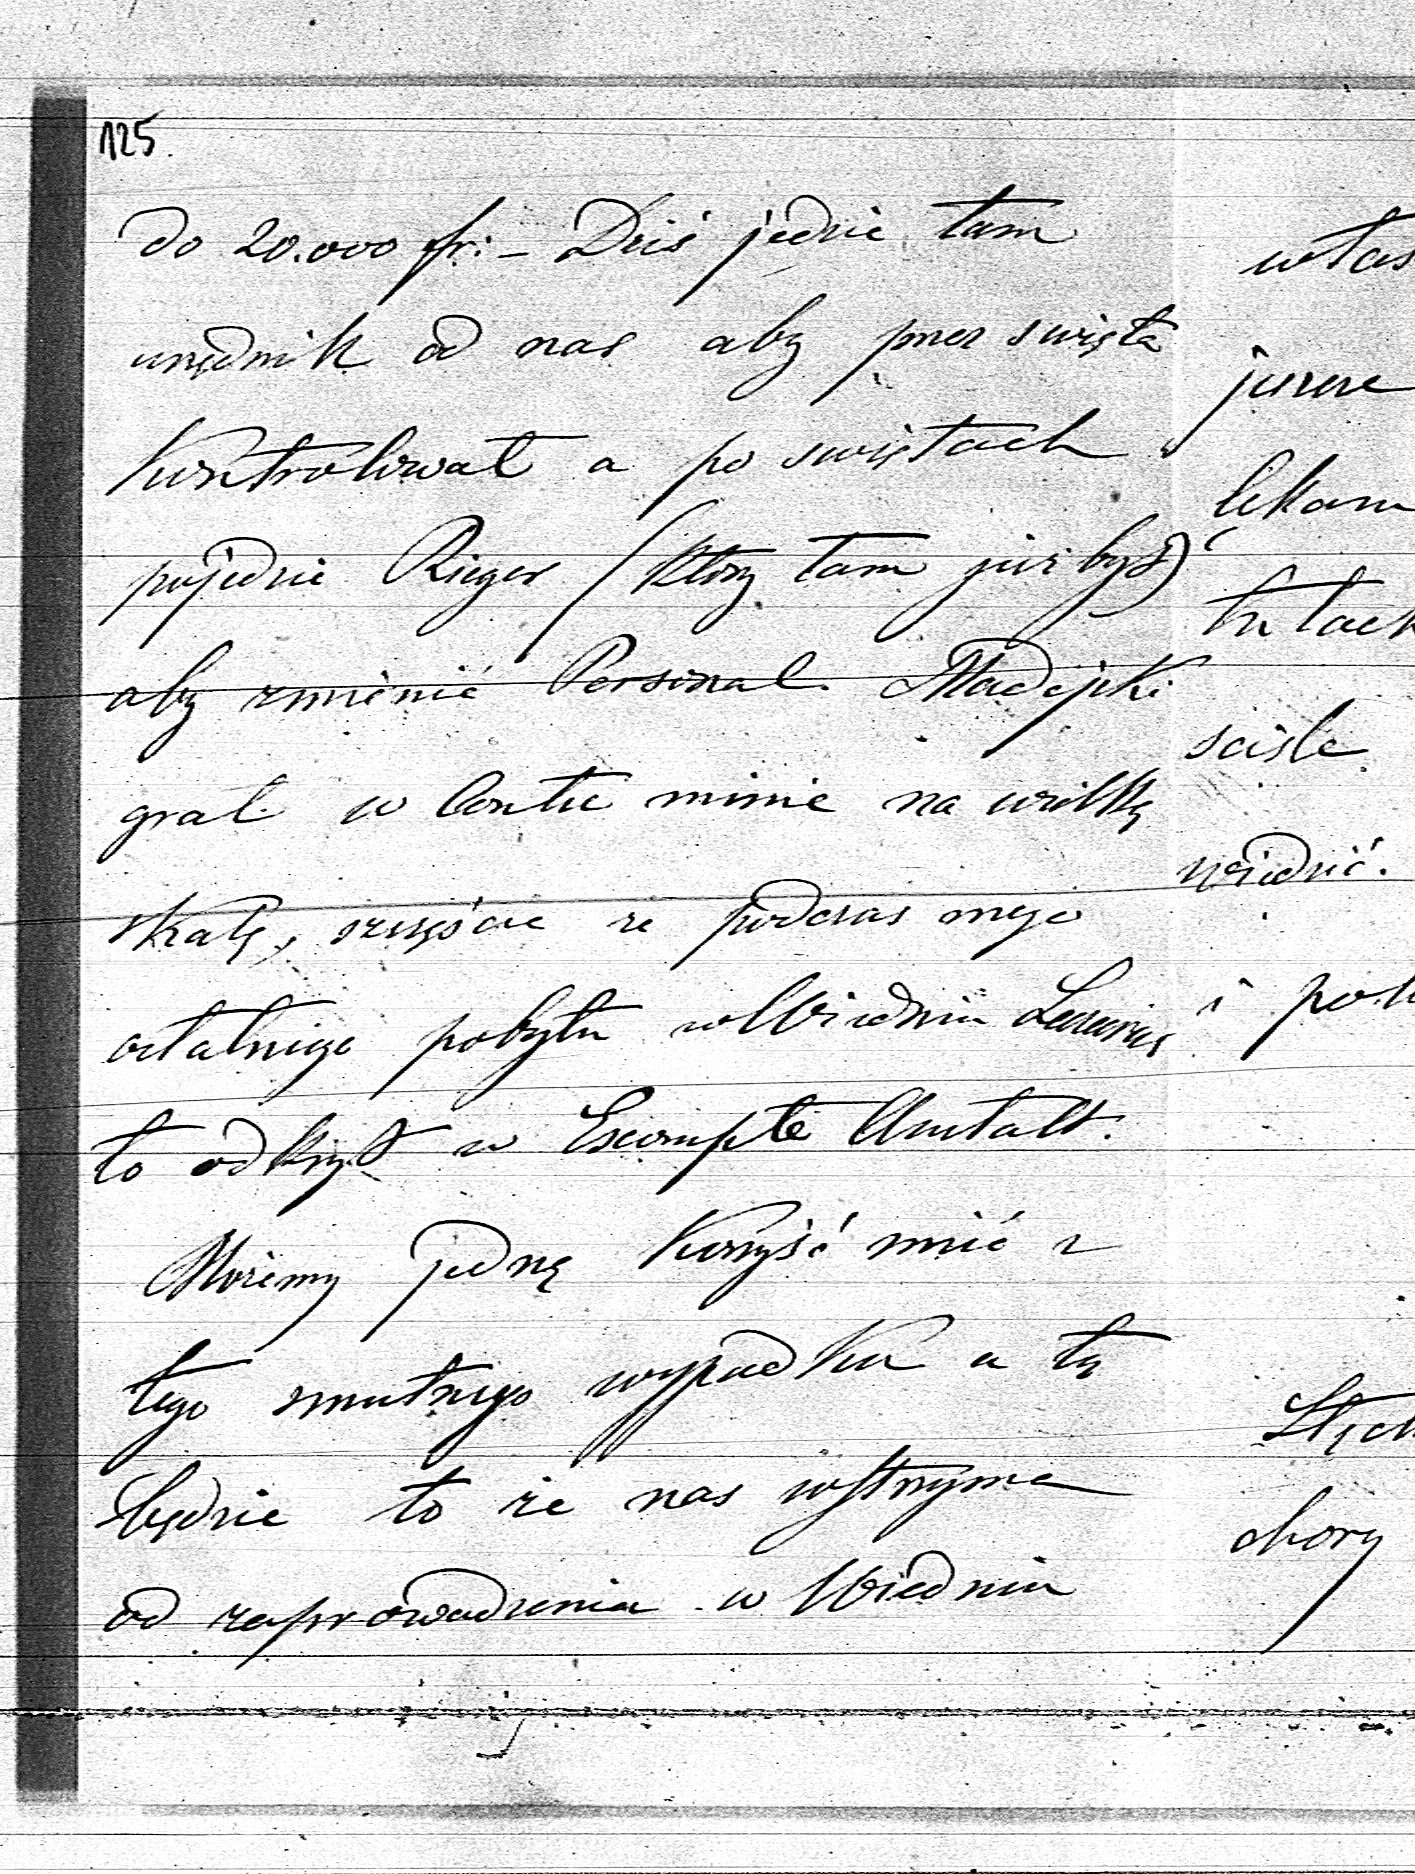 125
do 20.000 fr: – Dziś jedzie tam
urzędnik od nas aby przez święta
kontrolował a po świętach
pojedzie Rieger (który tam już był)
aby zmienić Personal. Madejski
grał w Contre minie na wielką
skalę, szczęście że podczas mego
ostatniego pobytu w Wiedniu
to odkrył w Escompte Anstalt.
Możemy jedną korzyść mieć z
tego smutnego wypadku a tą
będzie to że nas wstrzyma
od zaprowadzenia w Wiedniu
włas
jeszcze
lekarz
tutach
ściśle
wiedzieć.
i
chory